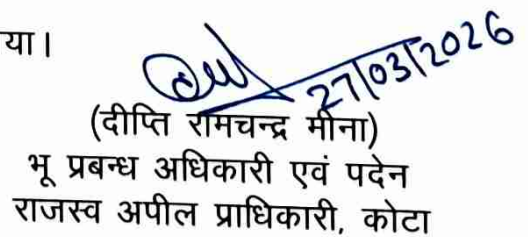 या।
27/03/2026
(दीप्ति रामचन्द्र मीना)
भू प्रबन्ध अधिकारी एवं पदेन
राजस्व अपील प्राधिकारी, कोटा